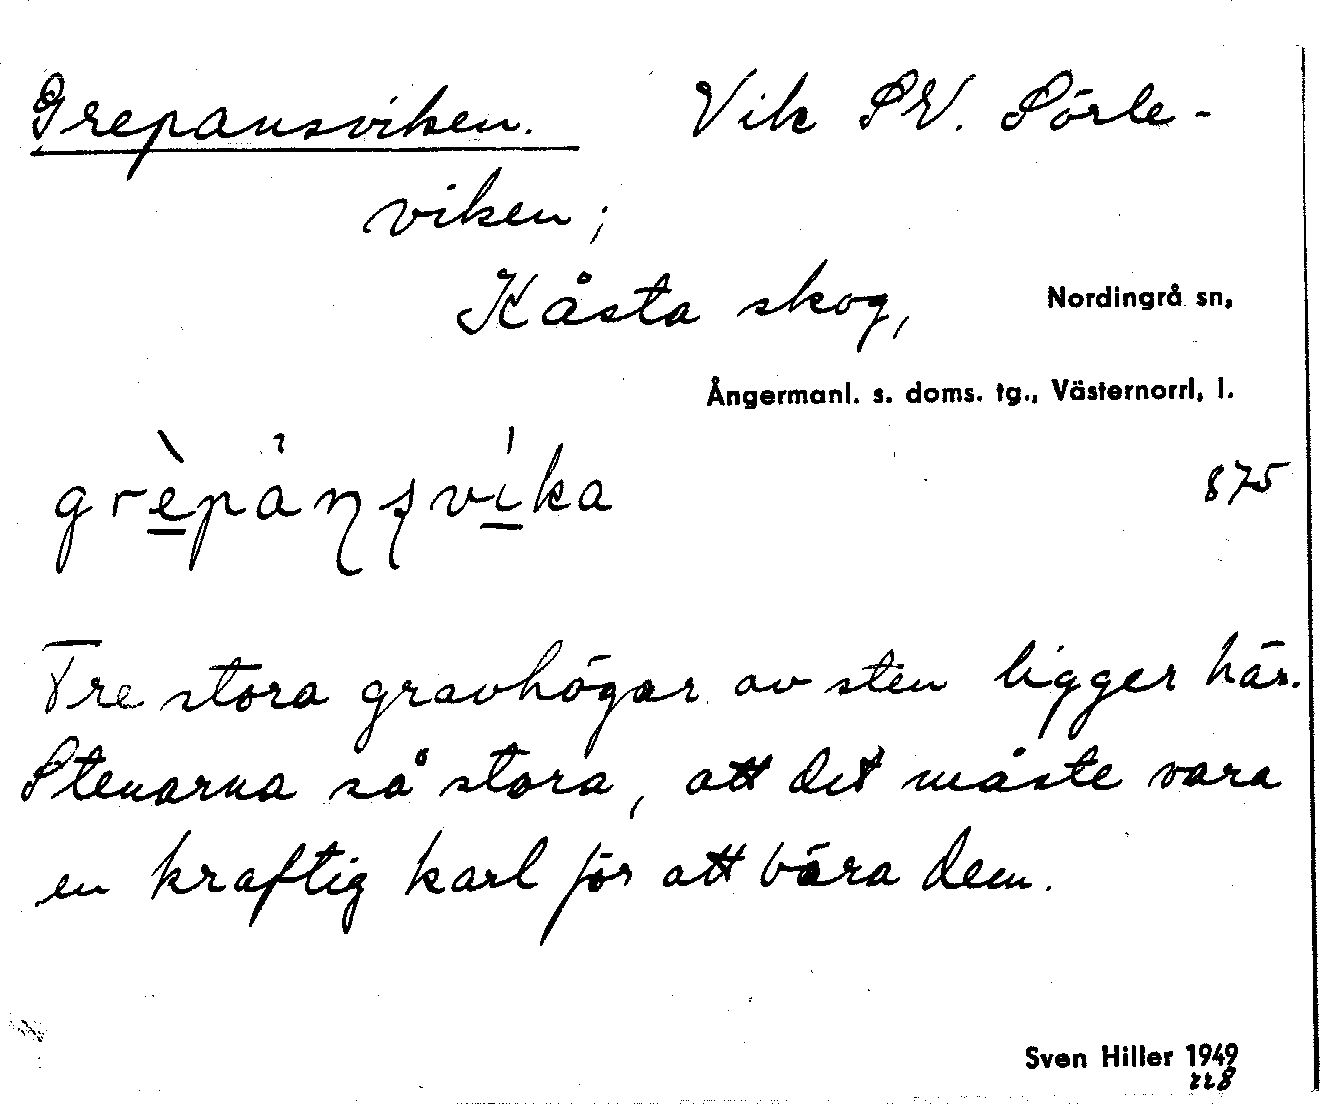 Grepansviken. Vik SV. Sörle-
viken;
Kåsta skog, Nordingrå sn,
Ångermanl. s. doms. tg., Västernorrl, l.
grèpånsvíka 875
Tre stora gravhögar av sten ligger här.
Stenarna så stora, att det måste vara
en kraftig karl för att bära dem.
Sven Hiller 1949
228